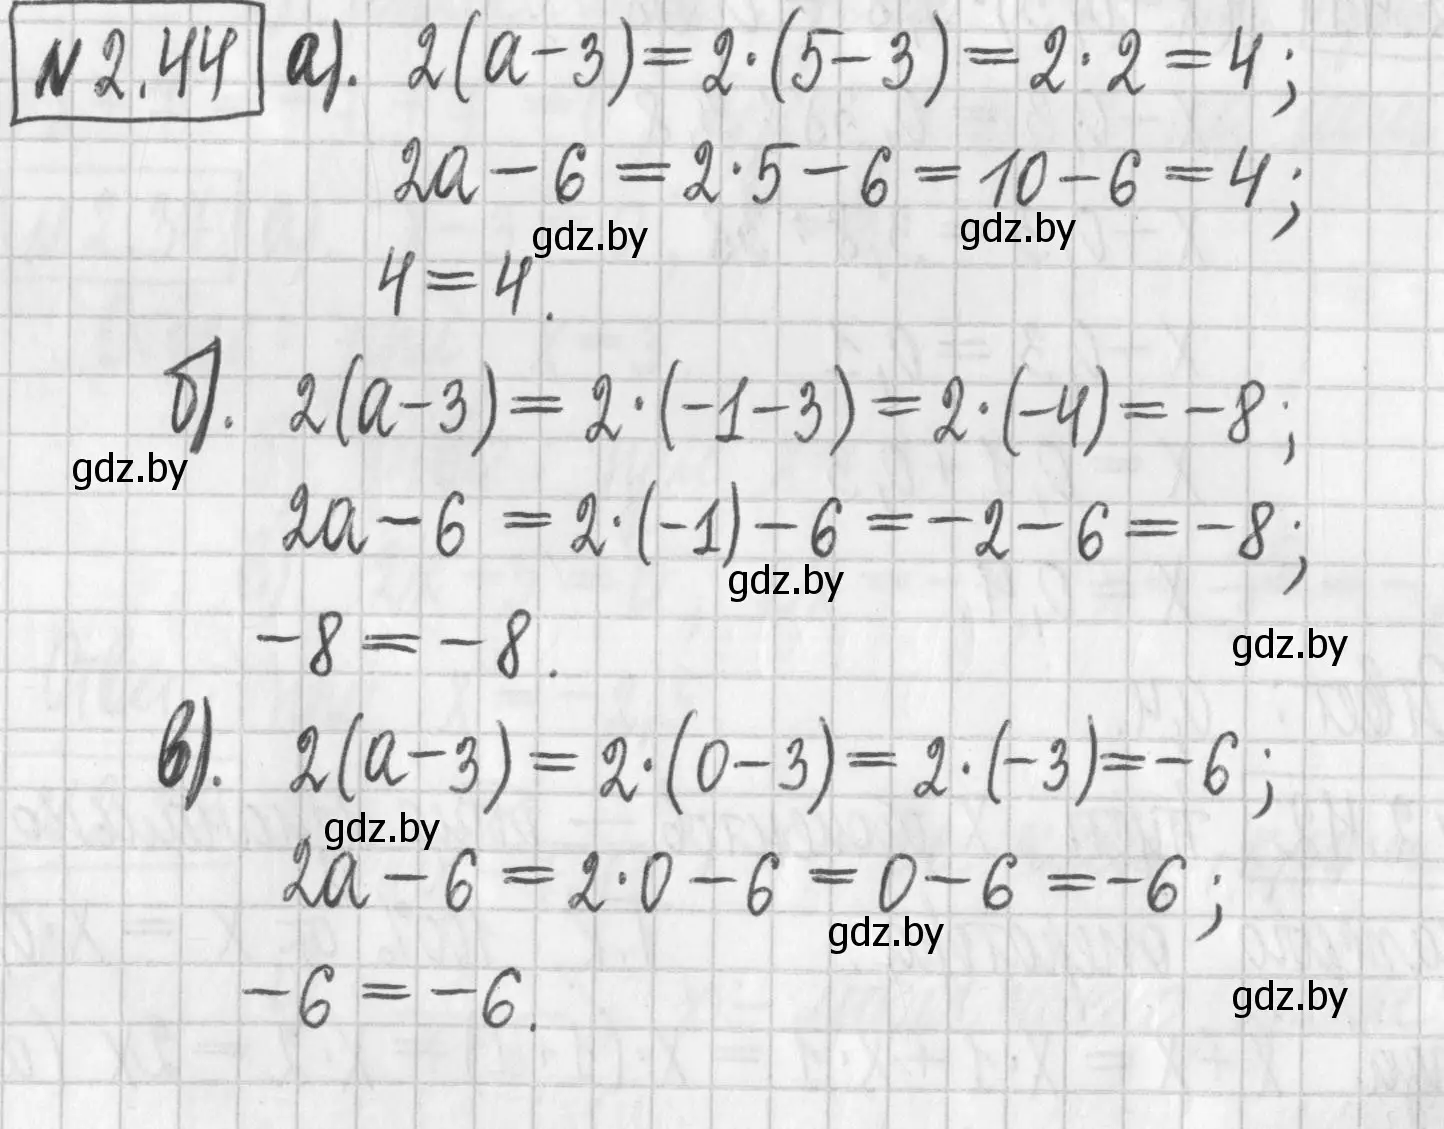 N 2.44 а). 2(a-3)=2·(5-3)=2·2=4;
2a-6=2·5-6=10-6=4;
gdz.by gdz.by
4=4.
б). 2(a-3)=2·(-1-3)=2·(-4)=-8;
gdz.by
2a-6=2·(-1)-6=-2-6=-8;
gdz.by
-8=-8.
gdz.by
в). 2(a-3)=2·(0-3)=2·(-3)=-6;
gdz.by
2a-6=2·0-6=0-6=-6;
gdz.by
-6=-6.
gdz.by